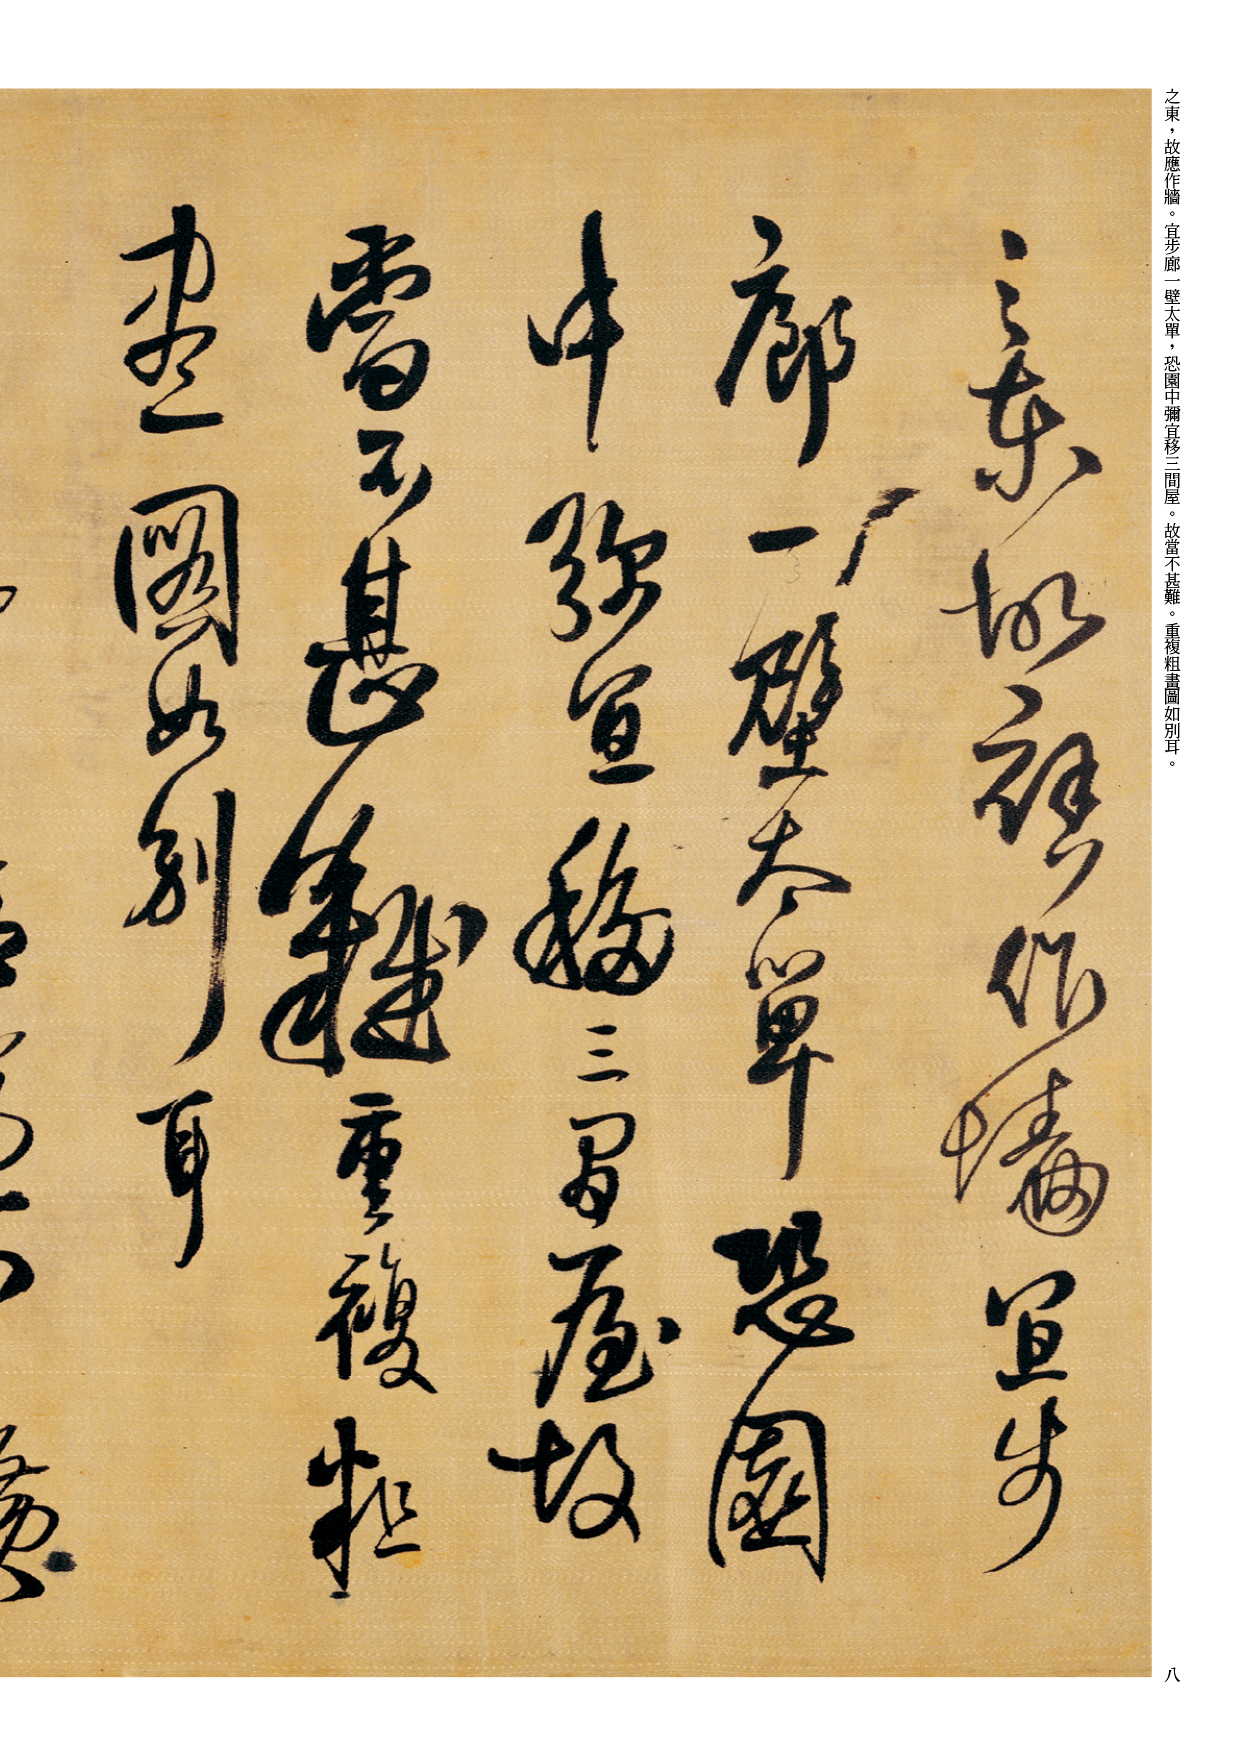 之東，故應作牆。宜步廊一壁太單，恐園中彌宜移三間屋。故當不甚難。重複粗畫圖如別耳。
之東故應作牆宜步
廊一壁太單恐園
中彌宜移三間屋故
當不甚難重複粗
畫圖如別耳
八